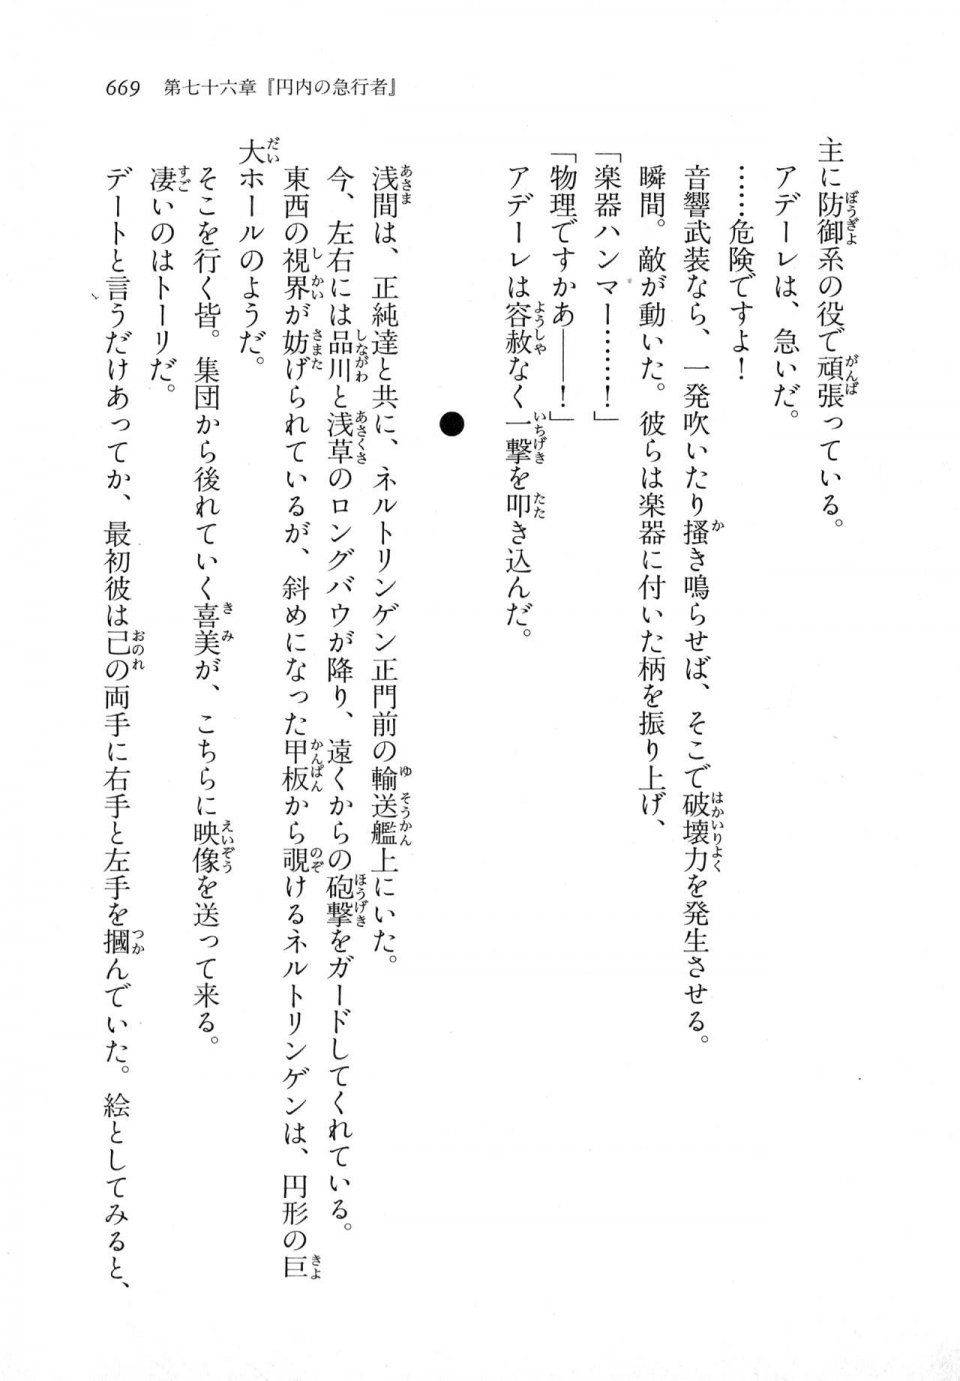 669　第七十六章『円内の急行者』
主に防御系の役で頑張っている。
アデーレは、急いだ。
……危険ですよ！
音響武装なら、一発吹いたり搔き鳴らせば、そこで破壊力を発生させる。
瞬間。敵が動いた。彼らは楽器に付いた柄を振り上げ、
「楽器ハンマー……！」
「物理ですかあ――！」
アデーレは容赦なく一撃を叩き込んだ。
●
浅間は、正純達と共に、ネルトリンゲン正門前の輸送艦上にいた。
今、左右には品川と浅草のロングバウが降り、遠くからの砲撃をガードしてくれている。
東西の視界が妨げられているが、斜めになった甲板から覗けるネルトリンゲンは、円形の巨
大ホールのようだ。
そこを行く皆。集団から後れていく喜美が、こちらに映像を送って来る。
凄いのはトーリだ。
デートと言うだけあってか、最初彼は己の両手に右手と左手を摑んでいた。絵としてみると、